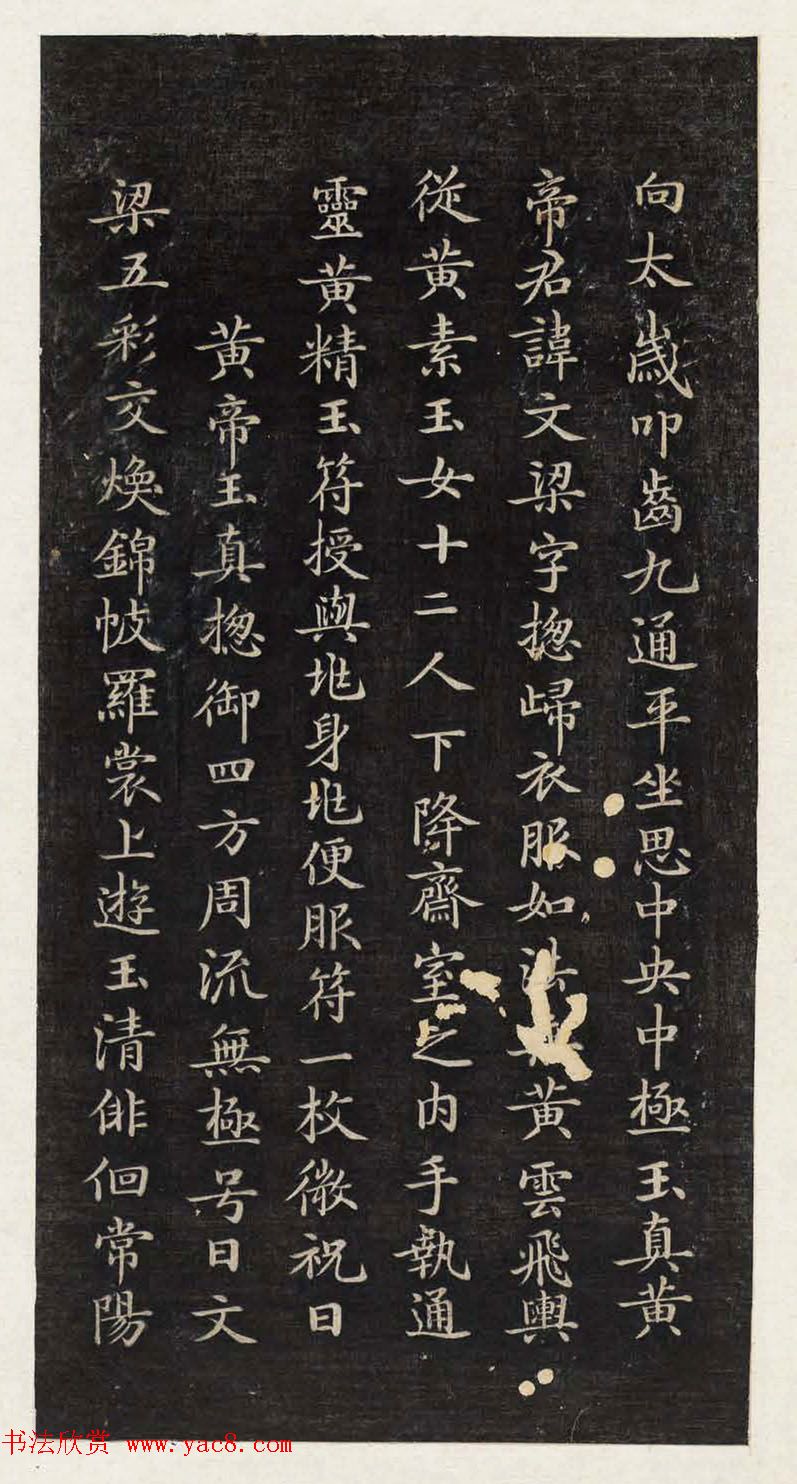 向太歲叩齒九通平坐思中央中極玉真黄
帝君諱文梁字揔歸衣服如法黄雲飛輿
從黄素玉女十二人下降齋室之内手執通
靈黄精玉符授與兆身兆便服符一枚微祝曰
黄帝玉真揔御四方周流無極号曰文
梁五彩交焕錦帔羅裳上遊玉清俳佪常陽
书法欣赏 www.yac8.com